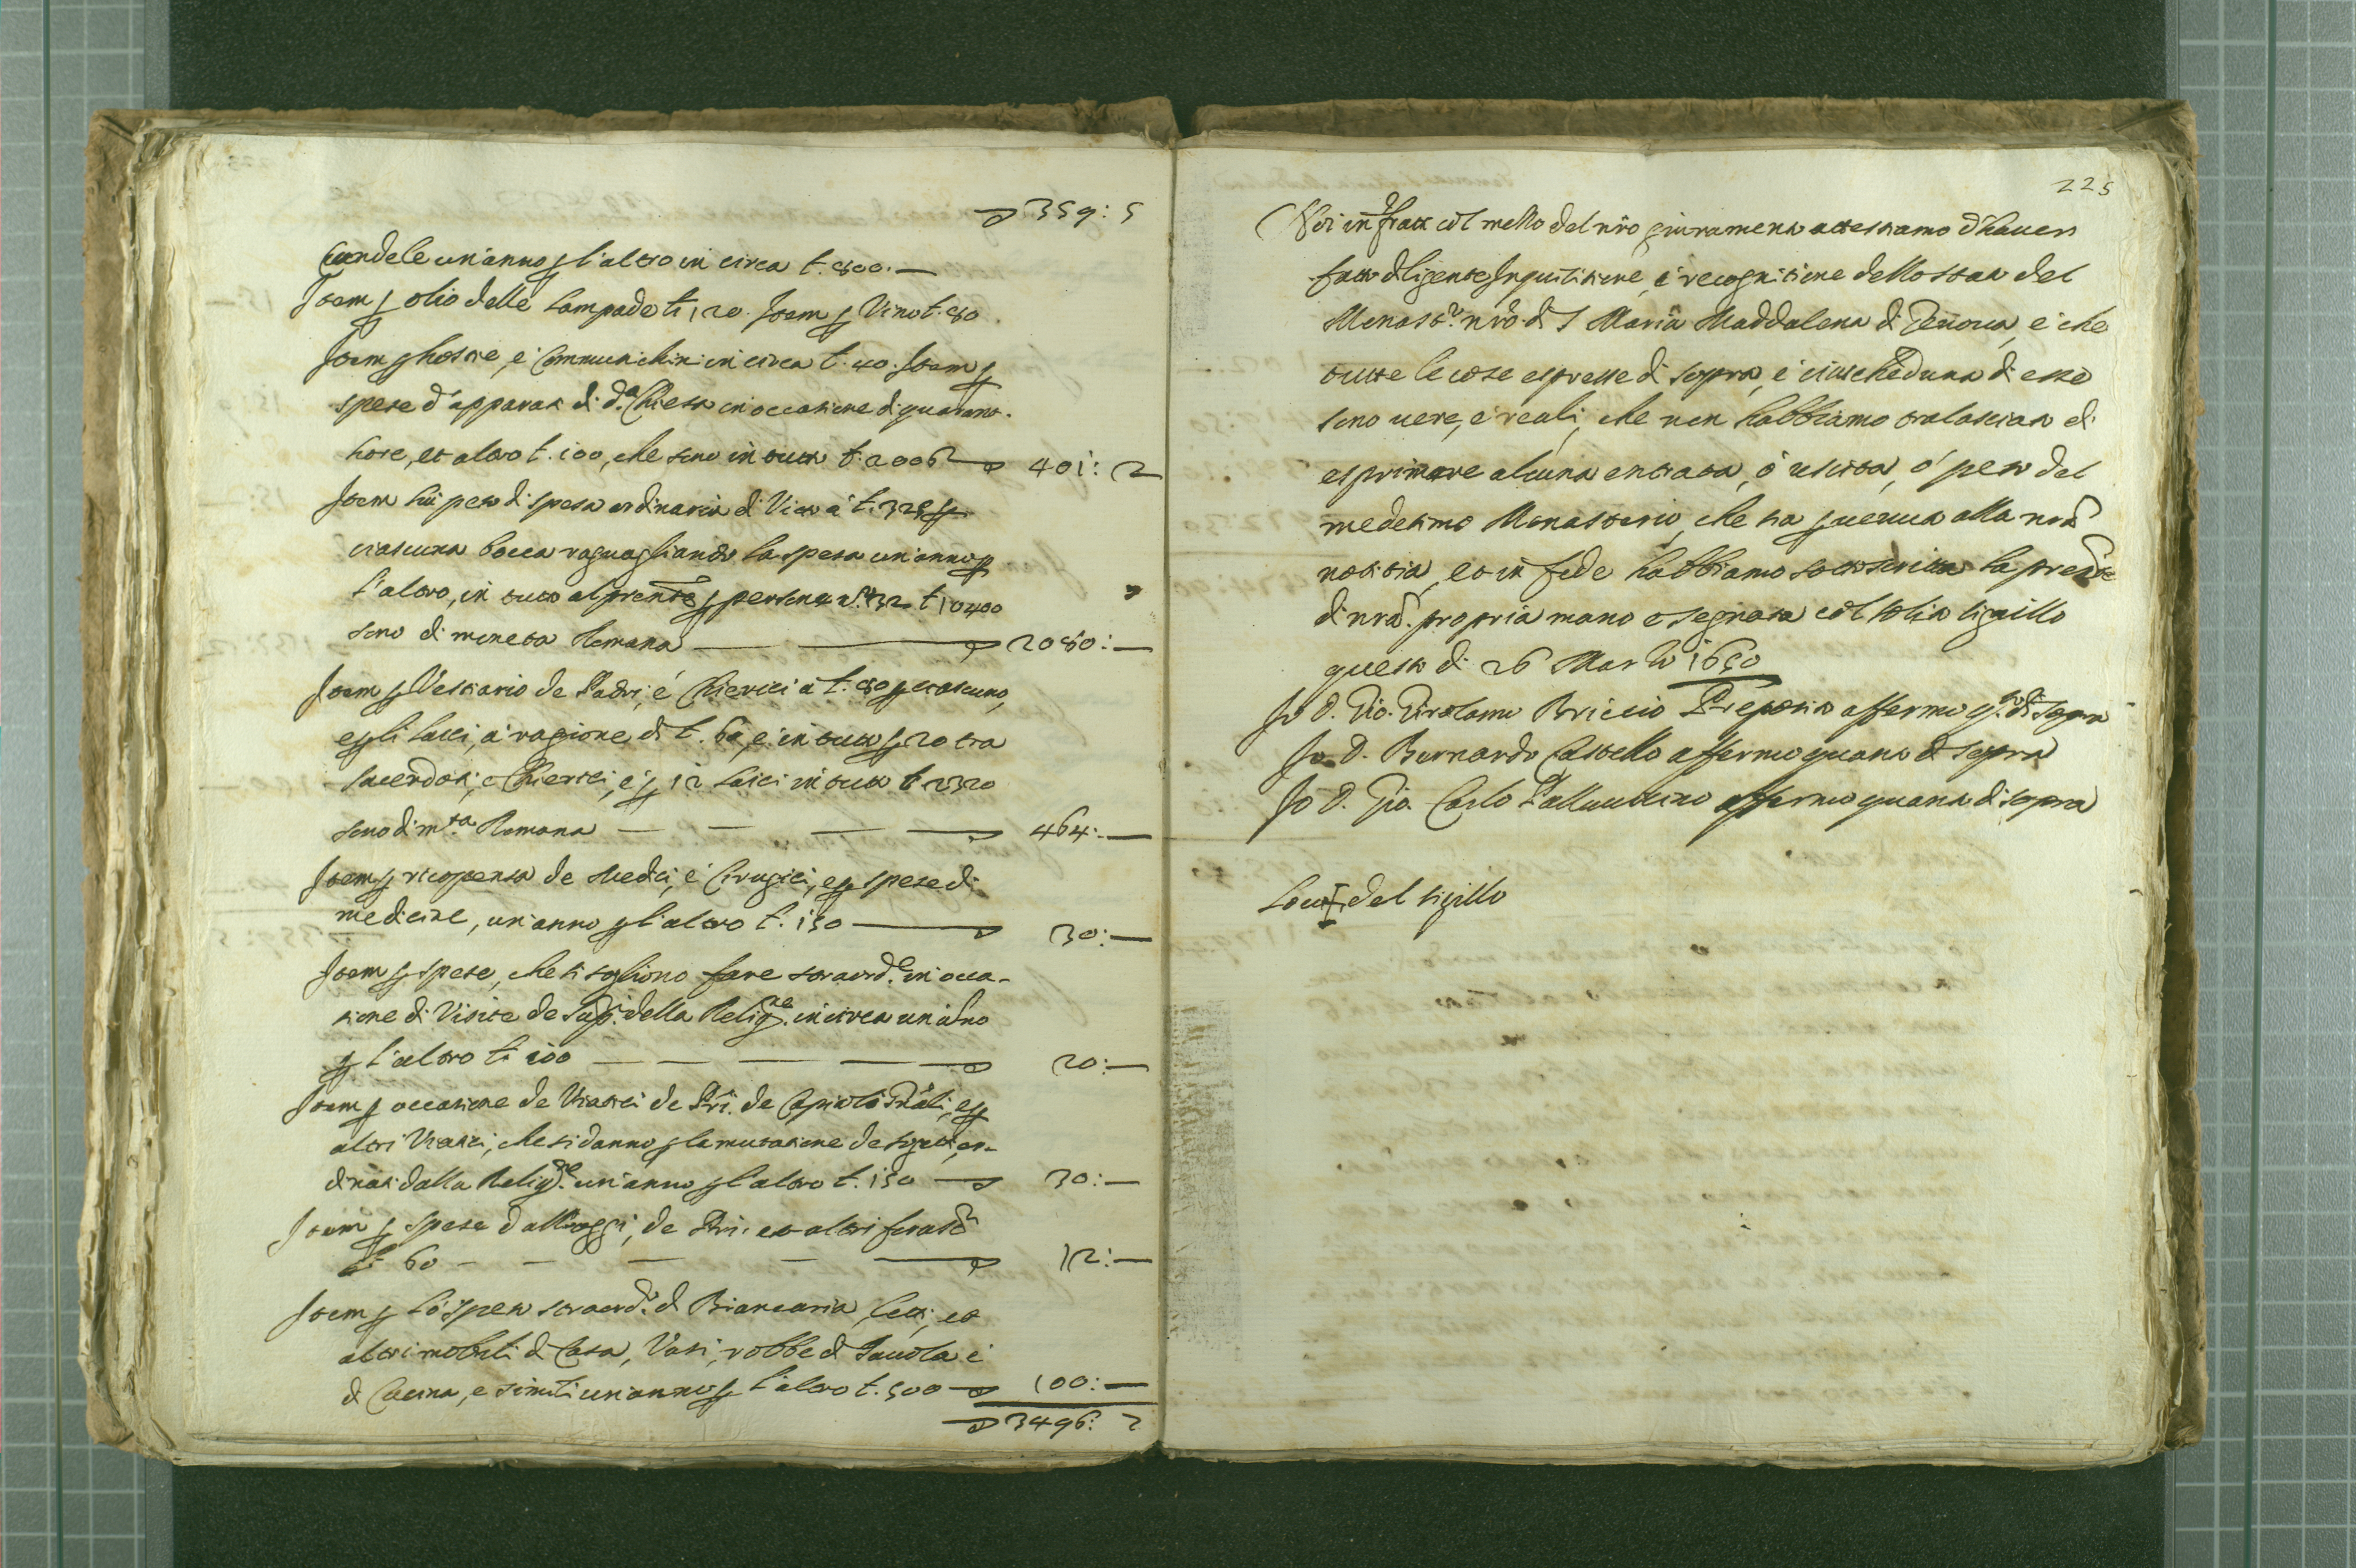 359: 5
Candele un'anno p l'altro in circa £. 800. —
Item p olio delle lampade £. 120. Item p Vino £. 80.
Item p hostie, e Communichini in circa £. 40. Item p
spese d'apparati di d.ª Chiesa in occasione di quarant'
hore, et altro £. 100, che sono in tutto £. 2006 401: 2
Item hà peso di spesa ordinaria di Vitto à £. 325 p
ciascuna bocca raguagliando la spesa un'anno p
l'altro, in tutto al p̃rente p persone n.º 32 £. 10400
sono di moneta Romana — 2080: —
Item p Vestiario de Padri, e Chierici à £. 80 p ciascuno,
e p li laici, à ragione di £. 60, e in tutto p 20 tra
sacerdoti, e Chierici, e p 12 laici in tutto £ 2320
sono di m.ta Romana — — — — 464: —
Item p ricopensa de Medici, e Cirugici, e p spese di
medicine, un'anno p l'altro £. 150 — 30: —
Item p spese, che si sogliono fare straord.e in occa-
sione di Visite de Sup.ri della Relig.ne in circa un'año
p l'altro £. 100 — — — — — 20: —
Item p occasione de Viatici de P̃ri. de Capitoli Gñali, e p
altri Viatici, che si danno p la mutatione de sogetti, or-
dinati dalla Relig.ne un'anno p l'altro £. 150 — 30: —
Item p spese d'alloggi, de P̃ri. et altri forast.ri
£. 60 — — — — — 12: —
Item p lo speso straord.º di Biancaria, letti, et
altri mobili di Casa, Vasi, robbe di Tavola e
di Cucina, e simili un'anno p l'altro £. 500 — 100: —
3496: 2
225
Noi infratti col mezzo del nr̃o giuramento attestiamo d'haver
fatto diligente Inquisitione, e recognitione dello stato del
Monast.º nr̃o di S Maria Maddalena di Genova, e che
tutte le cose espresse di sopra, e ciascheduna di esse
sono vere, e reali, che non habbiamo tralasciato di
esprimere alcuna entrata, ò uscita, ò peso del
medesimo Monasterio, che sia p venuta alla nrã
notitia, et in fede habbiamo sottoscritta la prente
di nrã. propria mano e segnata col solito sigillo
questo dì 26 Marzo 1650
Io D. Gio. Girolamo Briccio Preposito affermo q.to di sopra
Io D. Bernardo Castello affermo quanto di sopra
Io D. Gio. Carlo Pallavicino affermo quanto di sopra
Loco ✝ del sigillo